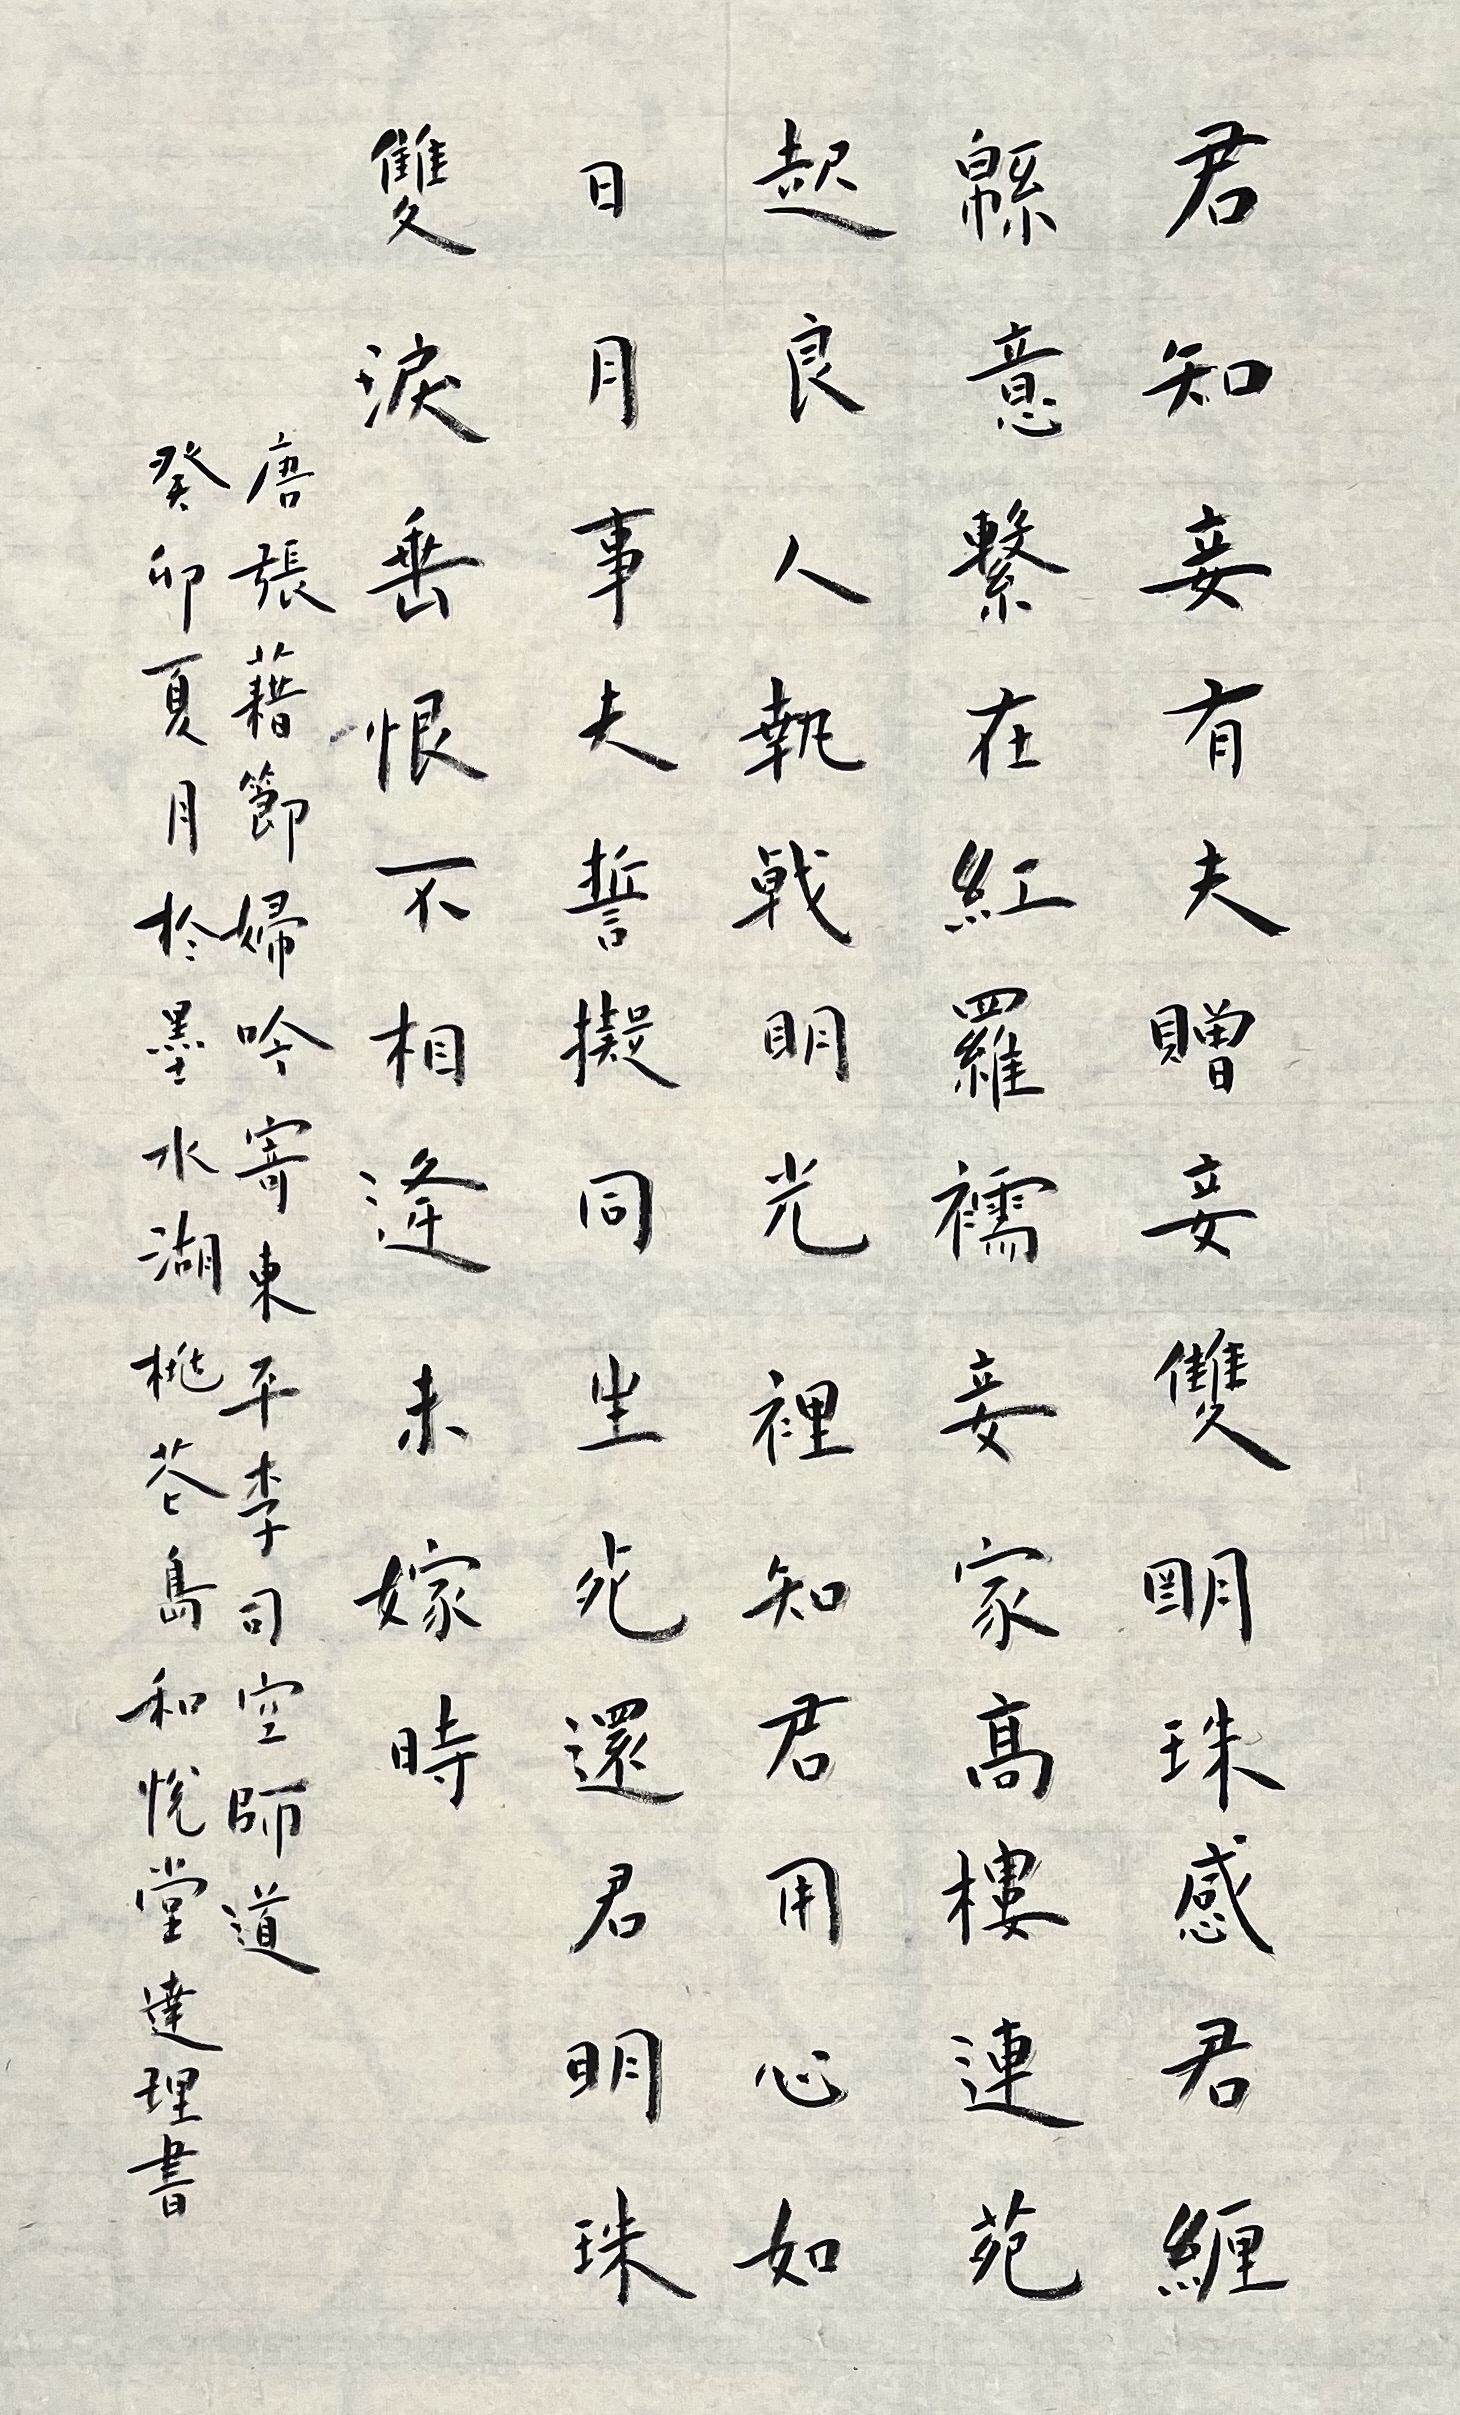 君知妾有夫贈妾雙明珠感君纏
緜意繫在紅羅襦妾家高樓連苑
起良人執戟明光裡知君用心如
日月事夫誓擬同生死還君明珠
雙淚垂恨不相逢未嫁時
唐張藉節婦吟寄東平李司空師道
癸卯夏月於墨水湖桃花島和悅堂達理書